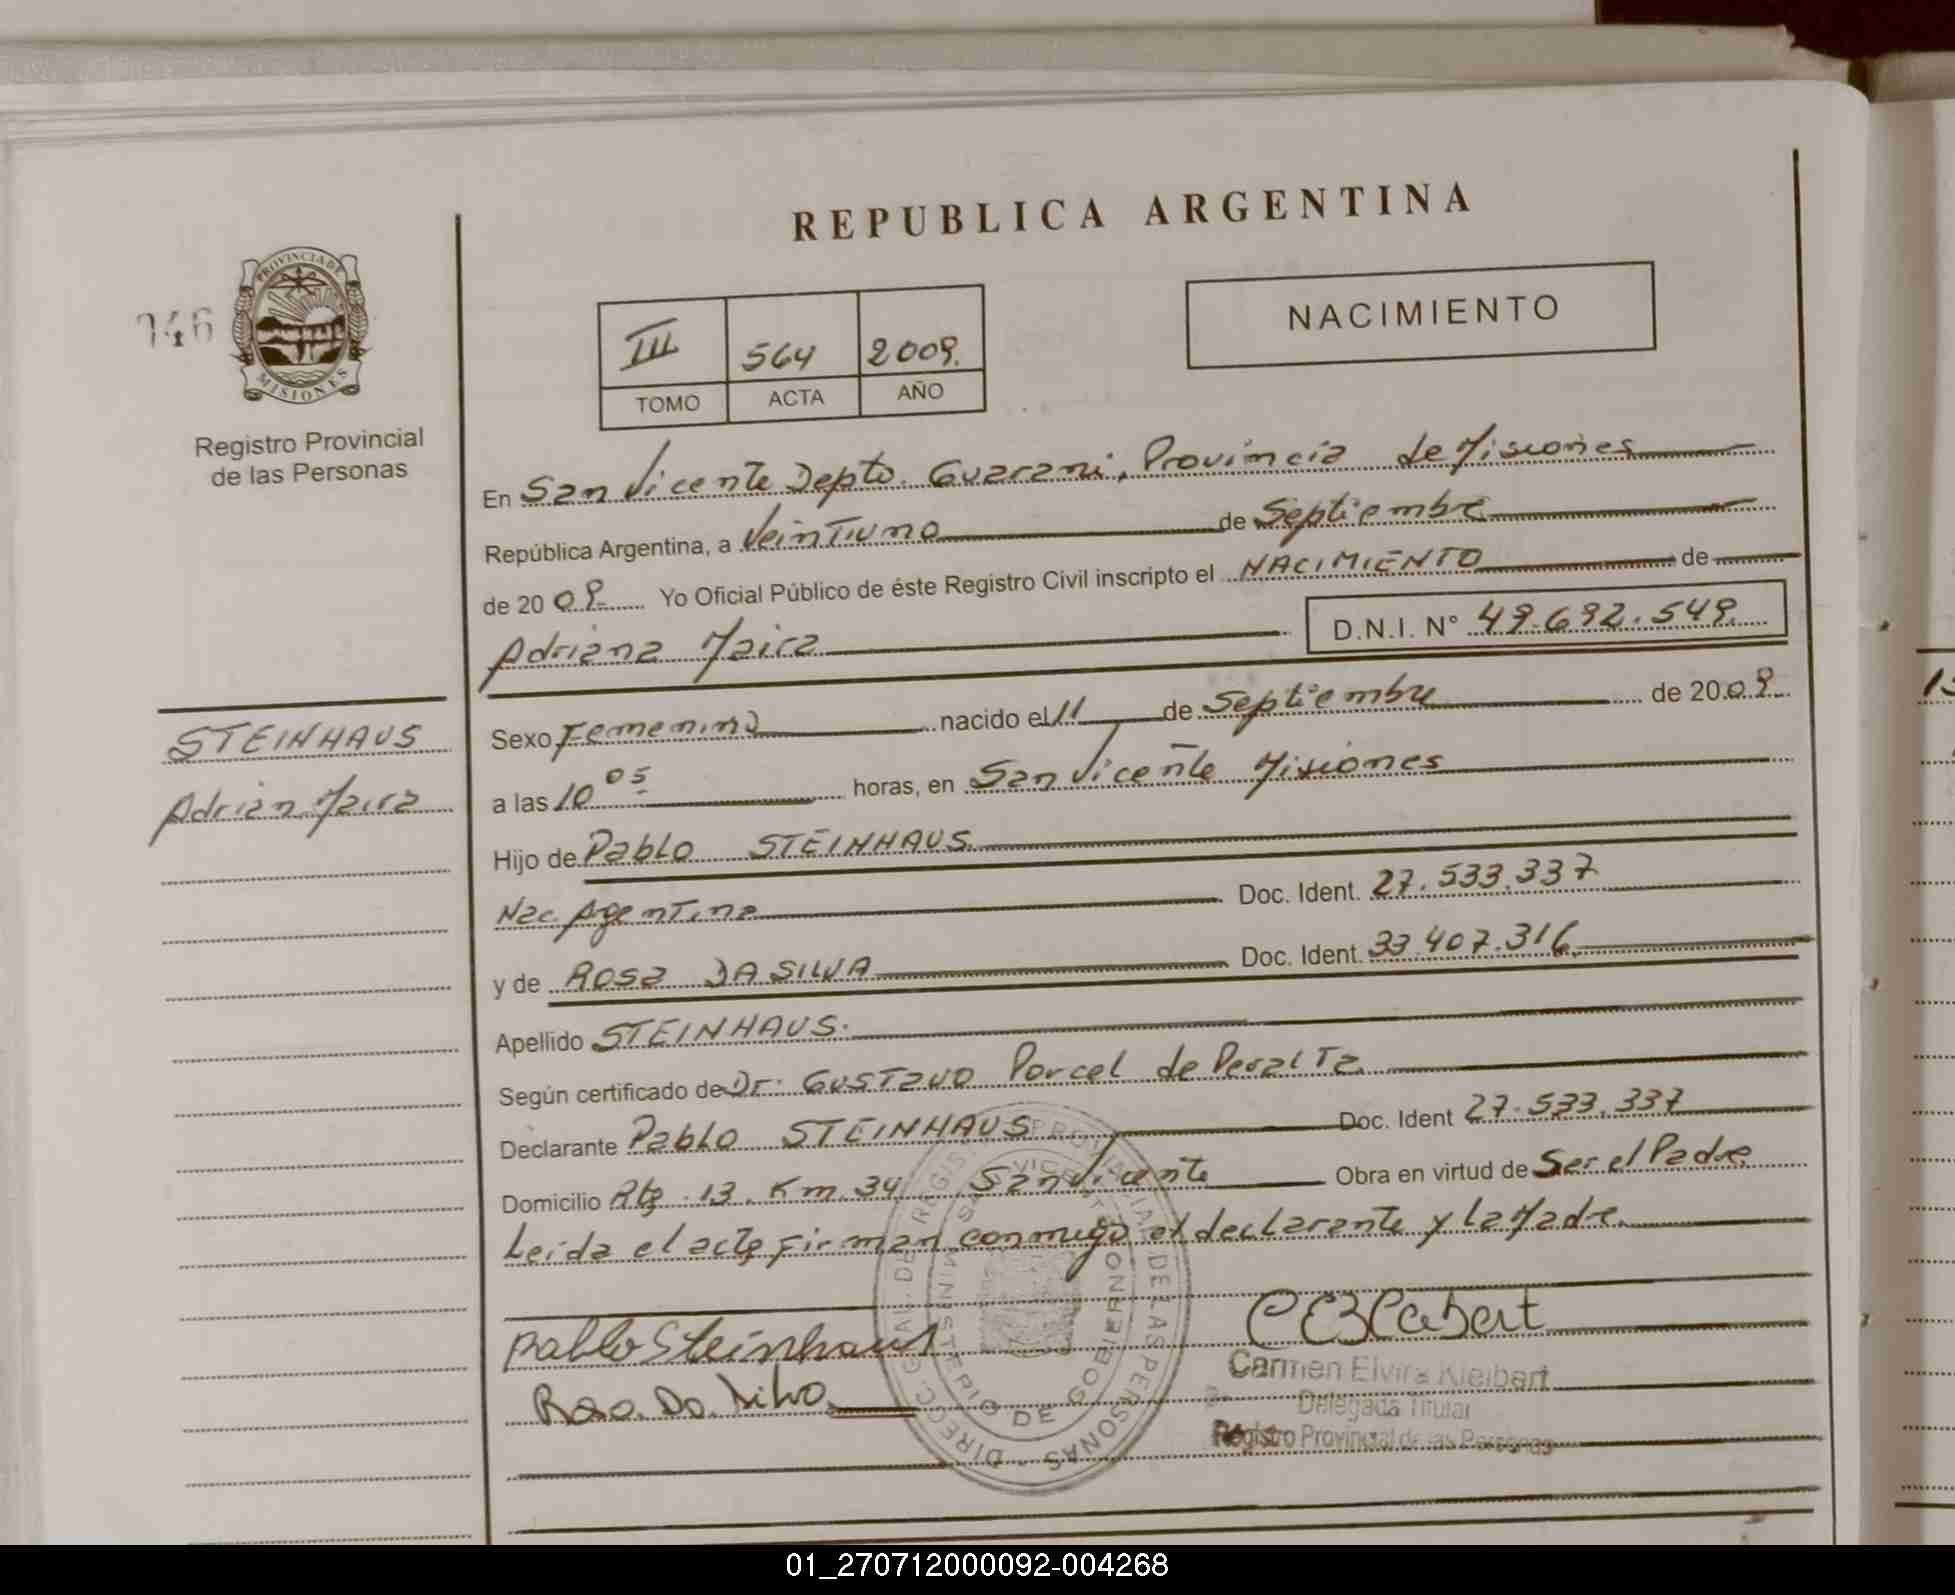 REPUBLICA ARGENTINA
746
PROVINCIA DE
MISIONES
Registro Provincial
de las Personas
III 564 2009.
TOMO ACTA AÑO
NACIMIENTO
En San Vicente Depto. Guarani, Provincia de Misiones
República Argentina, a Veintiuno de Septiembre
de 2009 Yo Oficial Público de éste Registro Civil inscripto el NACIMIENTO de
Adriana Maira D.N.I. N° 49.692.549.
STEINHAUS
Adrian Maira
Sexo Femenino nacido el 11 de Septiembre de 2009
a las 10 05 horas, en San Vicente Misiones
Hijo de Pablo STEINHAUS
Nac. Agentina Doc. Ident. 27.533.337
y de Rosa DA SILVA Doc. Ident. 33.407.316
Apellido STEINHAUS.
Según certificado de Dr. Gustavo Porcel de Peralta
Declarante Pablo STEINHAUS Doc. Ident 27.533.337
Domicilio Rta. 13. Km. 34 San Vicente Obra en virtud de Ser el Padre
Leida el acta firman conmigo el declarante y la Madre.
Pablo Steinhaus
Carmen Elvira Kleibert
Delegada Titular
Registro Provincial de las Personas
DIRECC. GRAL. DE REGISTRO PROVINCIAL DE LAS PERSONAS
MINISTERIO DE GOBIERNO
SAN VICENTE
01_270712000092-004268